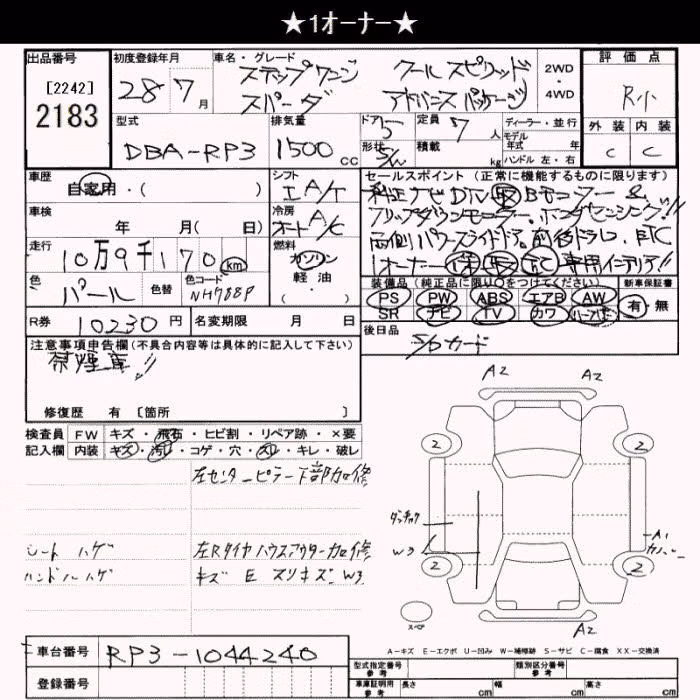 ★1オーナー★
出品番号
[2242]
2183
初度登録年月
28 7月
車名・グレード
ステップワゴン
スパーダ
クールスピリッド
アドバンスパッケージ
2WD
・
4WD
評価点
R小
外装 内装
C C
型式
DBA-RP3
排気量
1500cc
ドア 5
形状 S/W
定員 7人
積載 kg
ディーラー・並行
モデル年式 年
ハンドル 左・右
車歴
自家用・( )
シフト
I A/T
車検
年 月( 日)
冷房
オート A/C
走行
10万9千170km
燃料
ガソリン
軽油
・
色
パール
色替
色コード
NH788P
R券 10230円
名変期限 月 日
セールスポイント(正常に機能するものに限ります)
純正ナビ DTV 取 Bモニター &
フリップダウンモニター、ホンダセンシング!!
両側パワースライドドア、前後ドラレコ、ETC
1オーナー 保 取 記 専用インテリア!!
装備品(純正品に限り○をつけてください)
PS PW ABS エアB AW
SR ナビ TV カワ ハーフレザー
新車保証書
有・無
後日品
S/Dカード
注意事項申告欄(不具合内容等は具体的に記入して下さい)
禁煙車!!
修復歴 有 [箇所 ]
検査員記入欄
FW キズ・飛石・ヒビ割・リペア跡・×要
内装 キズ・汚れ・コゲ・穴・スレ・キレ・破レ
左センターピラー下部加修
シートハゲ
ハンドルハゲ
左Rタイヤハウスアウター加修
キズ E スリキズ W3
A2 A2
2 2
W3
A1
2 2
スペア
A2
A-キズ E-エクボ U-凹み W-補修跡 S-サビ C-腐食 XX-交換済
車台番号 RP3-1044240
登録番号
型式指定番号 参考
類別区分番号 参考
車庫証明用 参考 長さ cm 幅 cm 高さ cm